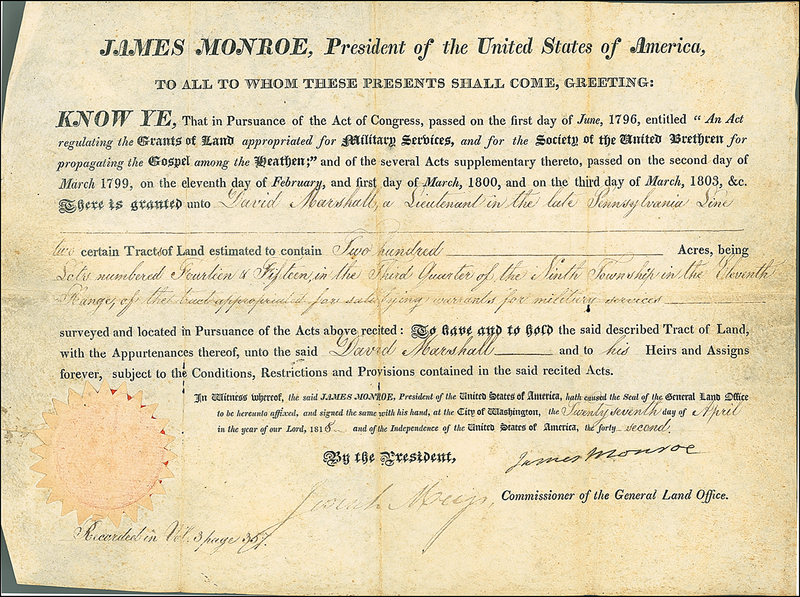 JAMES MONROE, President of the United States of America,
TO ALL TO WHOM THESE PRESENTS SHALL COME, GREETING:
KNOW YE, That in Pursuance of the Act of Congress, passed on the first day of June, 1796, entitled "An Act
regulating the Grants of Land appropriated for Military Services, and for the Society of the United Brethren for
propagating the Gospel among the Heathen;" and of the several Acts supplementary thereto, passed on the second day of
March 1799, on the eleventh day of February, and first day of March, 1800, and on the third day of March, 1803, &c.
There is granted unto David Marshall, a Lieutenant in the late Pennsylvania Line
two certain Tract of Land estimated to contain Two hundred Acres, being
Lots numbered Fourteen & Fifteen, in the Third Quarter of the Ninth Township in the Eleventh
Range, of the tract appropriated for satisfying warrants for military services
surveyed and located in Pursuance of the Acts above recited: To have and to hold the said described Tract of Land,
with the Appurtenances thereof, unto the said David Marshall and to his Heirs and Assigns
forever, subject to the Conditions, Restrictions and Provisions contained in the said recited Acts.
In Witness whereof, the said JAMES MONROE, President of the United States of America, hath caused the Seal of the General Land Office
to be hereunto affixed, and signed the same with his hand, at the City of Washington, the Twenty seventh day of April
in the year of our Lord, 1818 and of the Independence of the United States of America, the forty second.
By the President,
James Monroe
Josiah Meigs,
Commissioner of the General Land Office.
Recorded in Vol. 3 page 357.